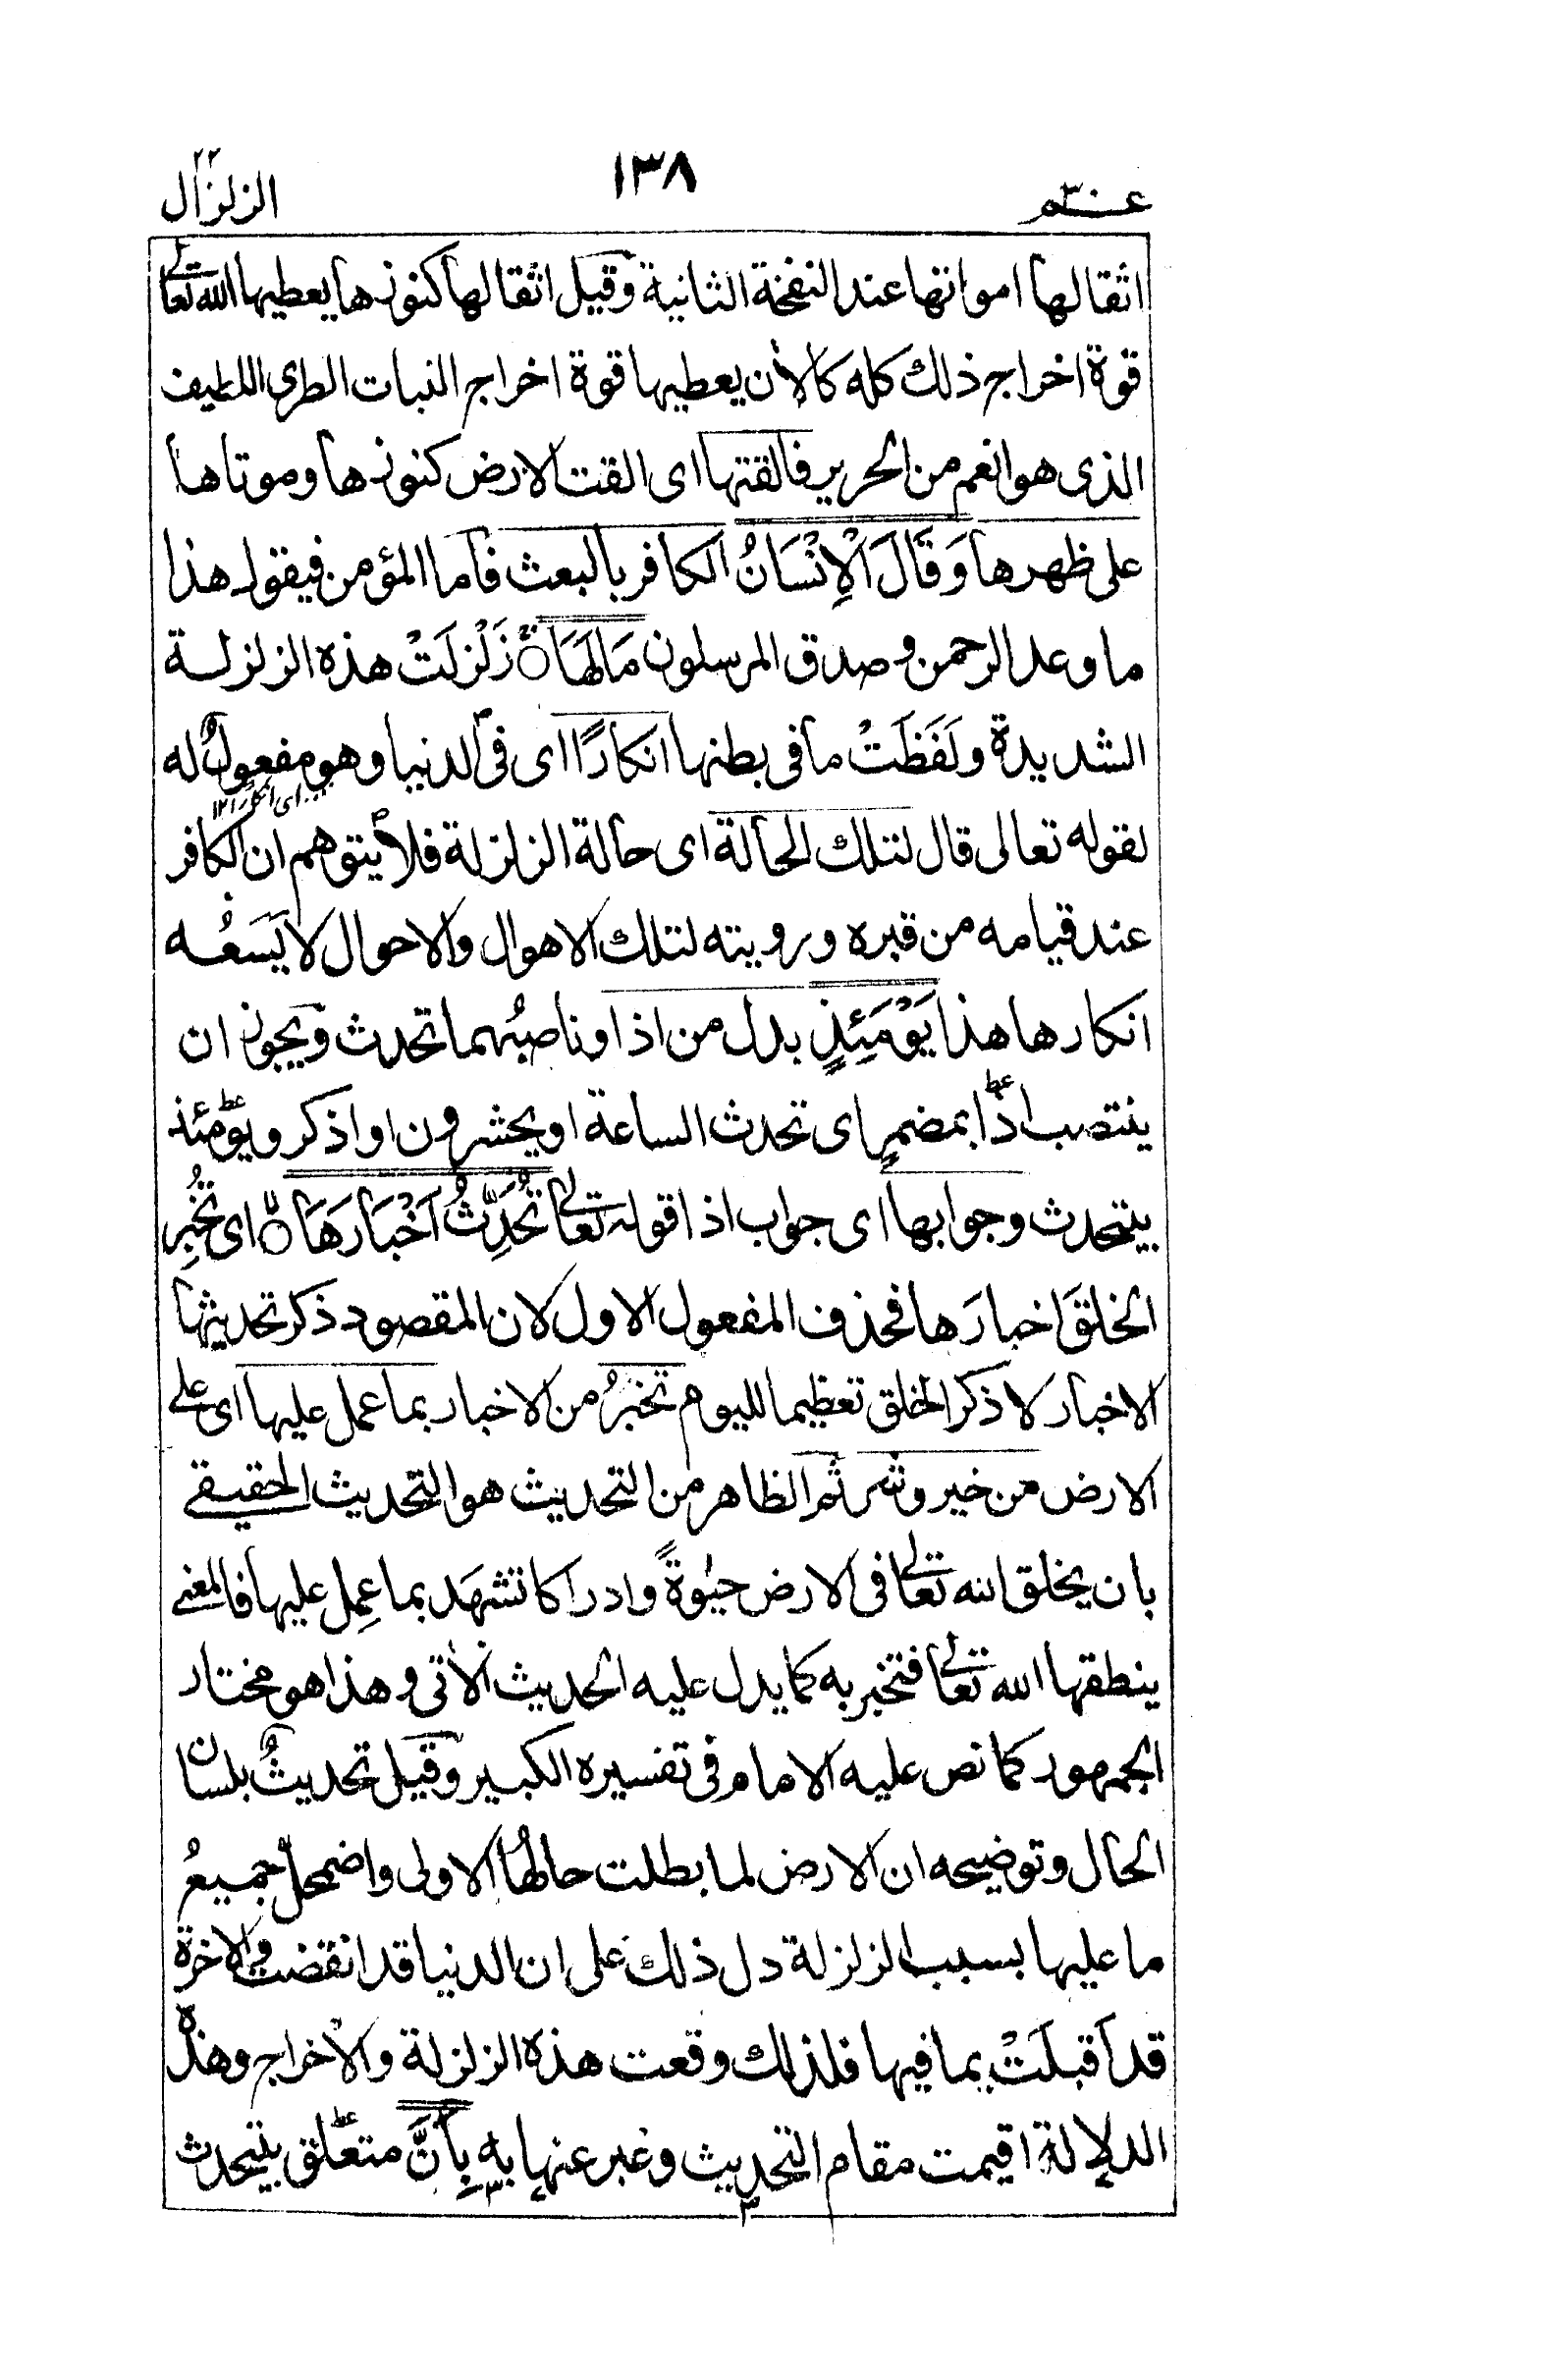 عم ٣٠
١٣٨
الزلزال ٢٢
اثقالها امواتها عند النفخة الثانية وقيل اثقالها كنوزها يعطيها الله تعالى
قوة اخراج ذلك كله كالأن يعطيها قوة اخراج النبات الطرى اللطيف
الذى هو انعم من الحرير فالقتها اى القت الارض كنوزها وموتاها
على ظهرها وَقَالَ الْاِنْسَانُ الكافر بالبعث فاما المؤمن فيقول هذا
ما وعد الرحمن وصدق المرسلون مَالَهَا زَلْزَلَتْ هذه الزلزلة
الشديدة ولَفَظَتْ ما فى بطنها انكارًا اى فى الدنيا وهو مفعولٌ له
اى انكارا ١٢
لقوله تعالى قال لتلك الحالة اى حالة الزلزلة فلا يتوهم ان الكافر
عند قيامه من قبره ورويته لتلك الاهوال والاحوال لا يَسَعُه
انكارها هذا يَوْمَئِذٍ بدل من اذا وناصبُهما تحدث ويجوز ان
ينتصب اذا بمضمرٍ اى تحدث الساعة او يحشرون او اذكر ويومئذ
بيتحدث وجوابها اى جواب اذا قوله تعالى تُحَدِّثُ اَخْبَارَهَا اى تُخْبِر
الخلقَ اخبارَها فحذف المفعول الاول لان المقصود ذكر تحديثها
الاخبار لا ذكر الخلق تعظيما لليوم تخبرُ من الاخبار بما عمل عليها اى على
الارض من خير وشر ثم الظاهر من التحديث هو التحديث الحقيقے
بان يخلق الله تعالى فى الارض حيٰوةً وادراكا تشهَد بما عمِل عليها فالمعنے
ينطقها الله تعالى فتخبر به كما يدل عليه الحديث الأتى وهذا هو مختار
الجمهور كما نص عليه الامام فى تفسيره الكبير وقيل تحديثٌ بلسان
الحال وتوضيحه ان الارض لما بطلت حالُها الاولى واضمحلّ جميعُ
ما عليها بسبب الزلزلة دل ذلك على ان الدنيا قد انقضت والاخرة
قد اَقبلَتْ بما فيها فلذلك وقعت هذه الزلزلة والاخراج وهذه
الدلالة اقيمت مقام التحديث وعبر عنها به بِاَنَّ متعلق بيتحدث